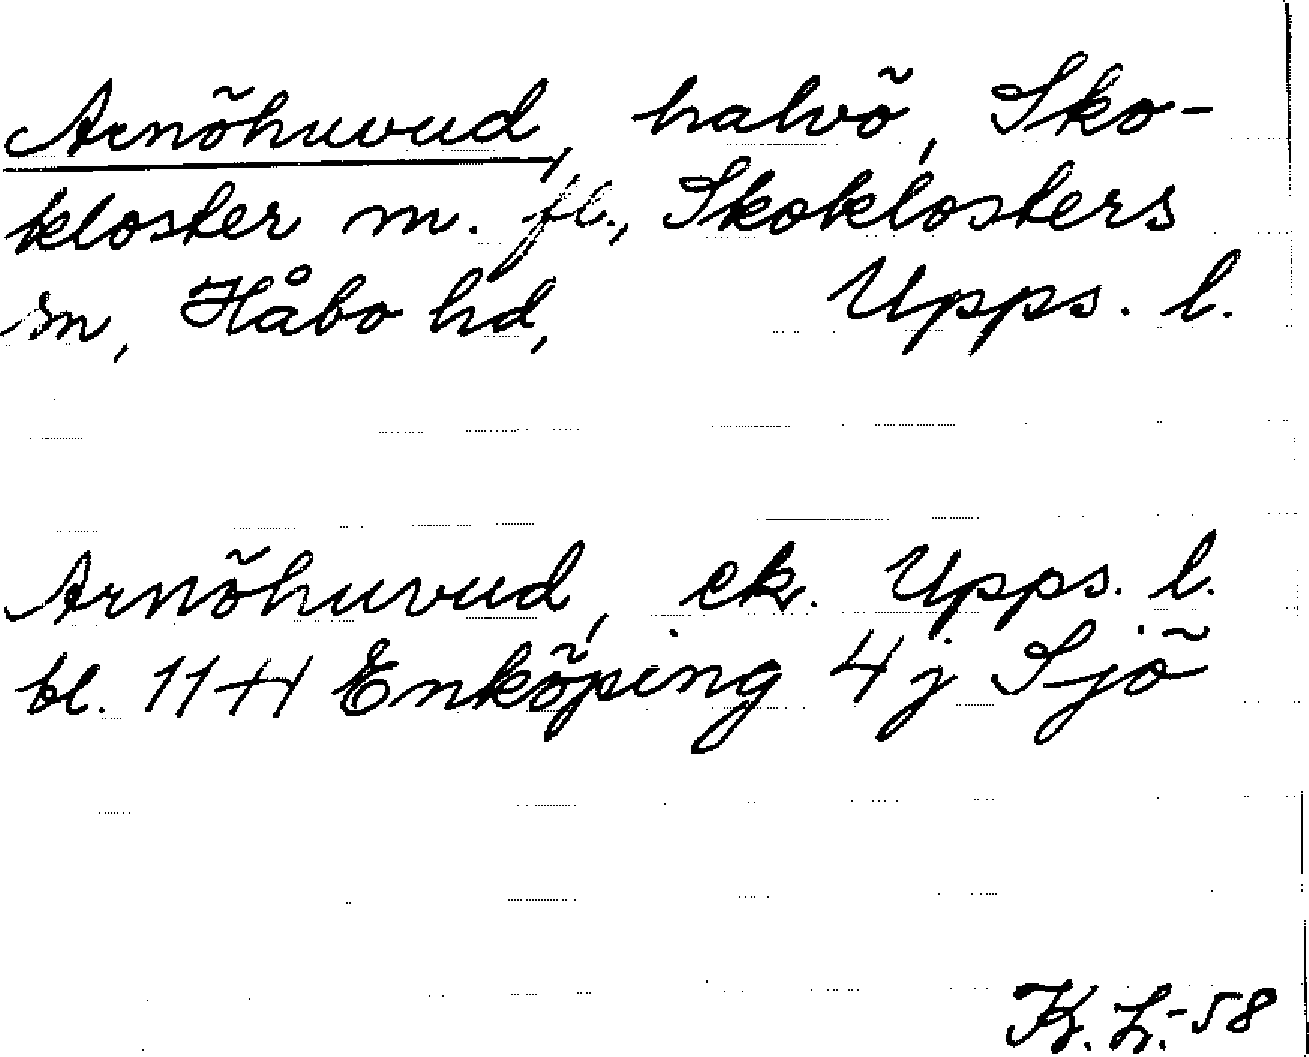 Arnöhuvud, halvö, Sko-
kloster m. fl., Skoklosters
sn, Håbo hd, Upps. l.
Arnöhuvud, ek. Upps. l.
bl. 11+1 Enköping 4j Sjö
K. L.-58